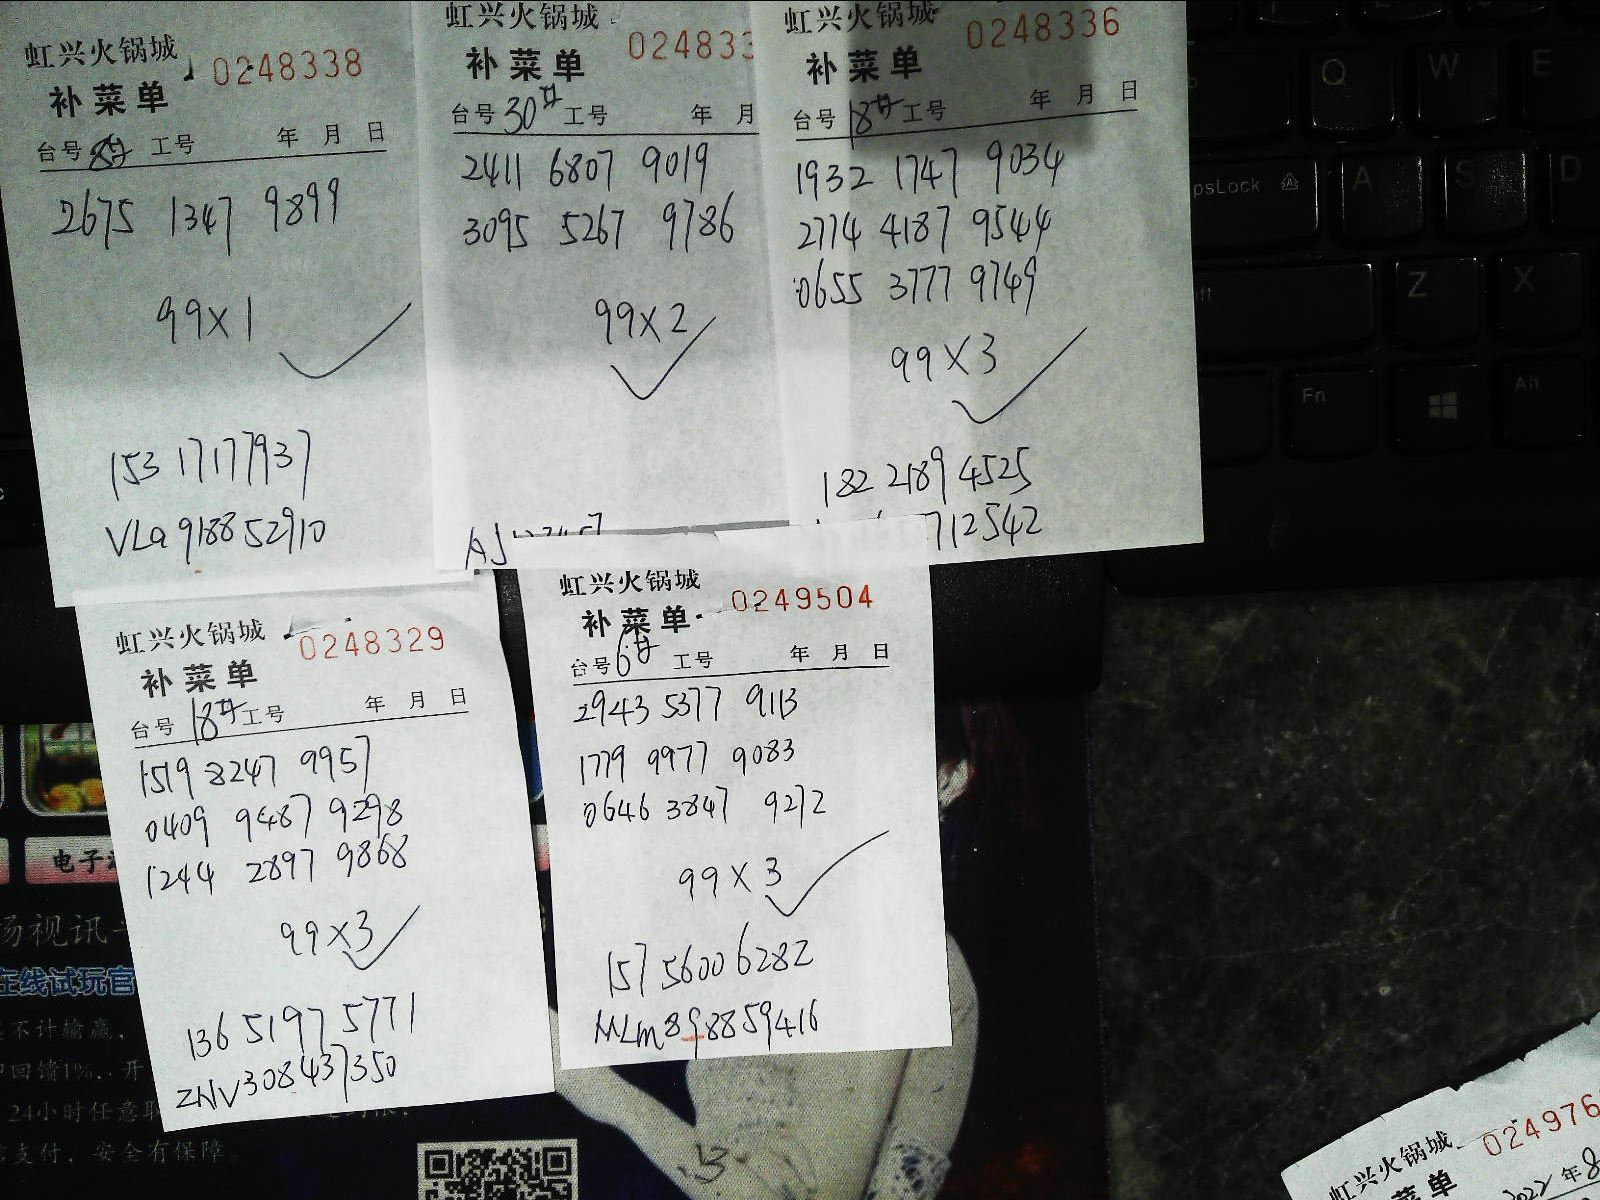 虹兴火锅城
0248338
补菜单
台号 工号 年 月 日
2675 1347 9899
99×1
153 17177937
VLa 918852910
虹兴火锅城
024833
补菜单
台号 30# 工号 年 月
2411 6807 9019
3095 5267 9786
99×2
虹兴火锅城
0248336
补菜单
台号 18# 工号 年 月 日
1932 1747 9034
2774 4187 9544
0655 3777 9749
99×3
182 2189 4525
712542
虹兴火锅城
0248329
补菜单
台号 18# 工号 年 月 日
1519 8247 9957
0409 9487 9298
1244 2897 9868
99×3
136 5197 5771
ZNV308437350
虹兴火锅城
0249504
补菜单
台号 6# 工号 年 月 日
2943 5377 9113
1779 9977 9083
0646 3847 9272
99×3
157 5600 6282
MLm898859416
虹兴火锅城
024976
补菜单
2022 年 8
电子
场视讯
在线试玩官
不计输赢,
回馈1%. 开
24小时任意取
支付, 安全有保障
Q
W
E
psLock
A
S
D
Z
X
Fn
Alt